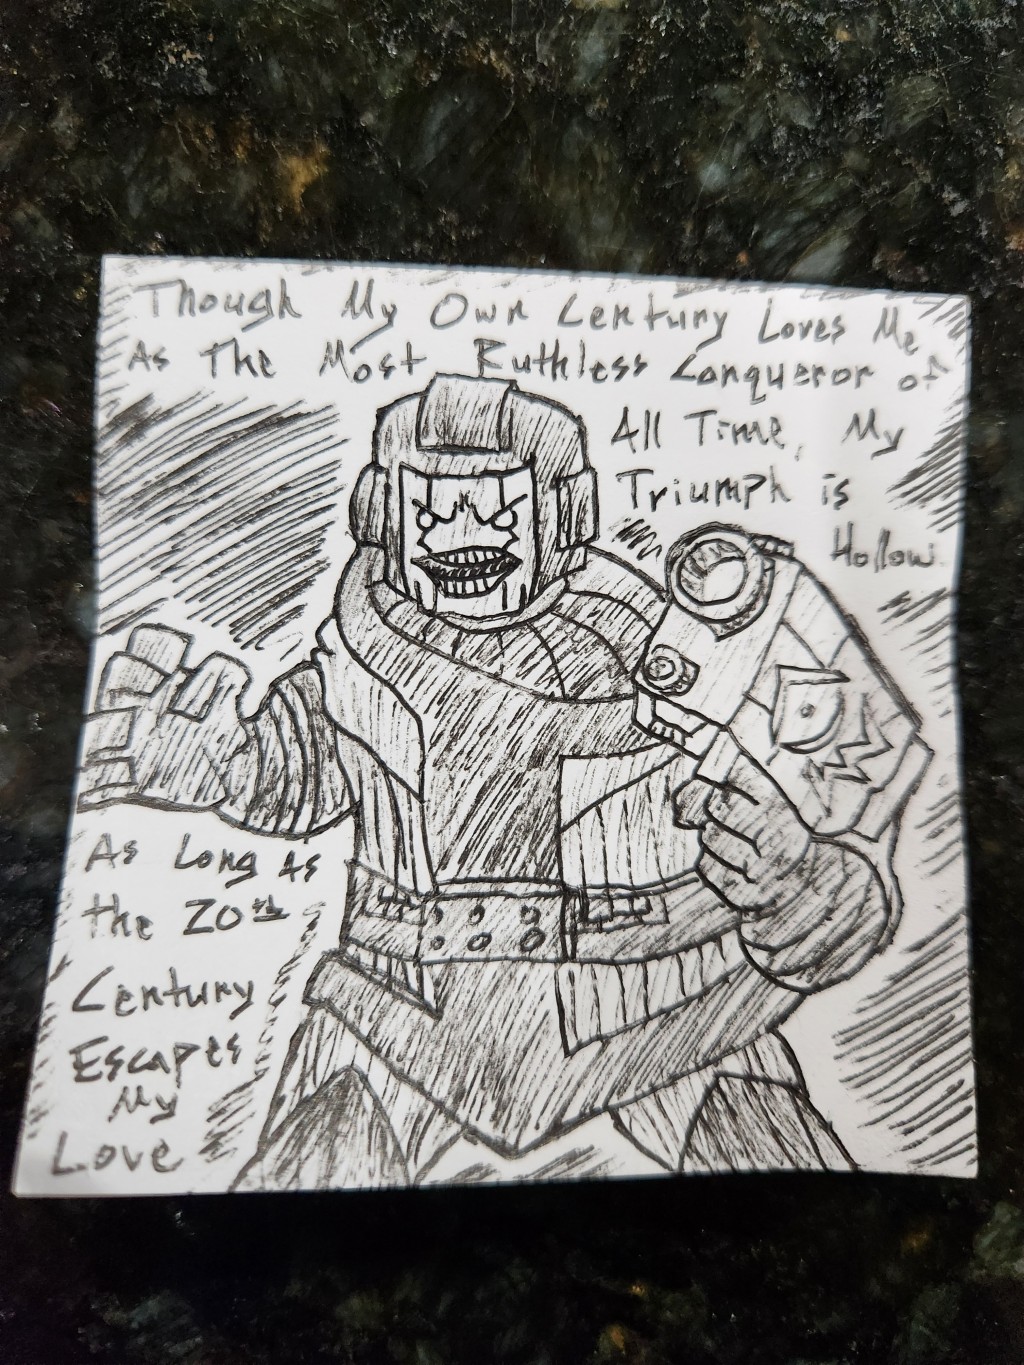 Though My Own Century Loves Me
As The Most Ruthless Conqueror of
All Time, My
Triumph is
Hollow.
As Long As
the 20th
Century
Escapes
My
Love